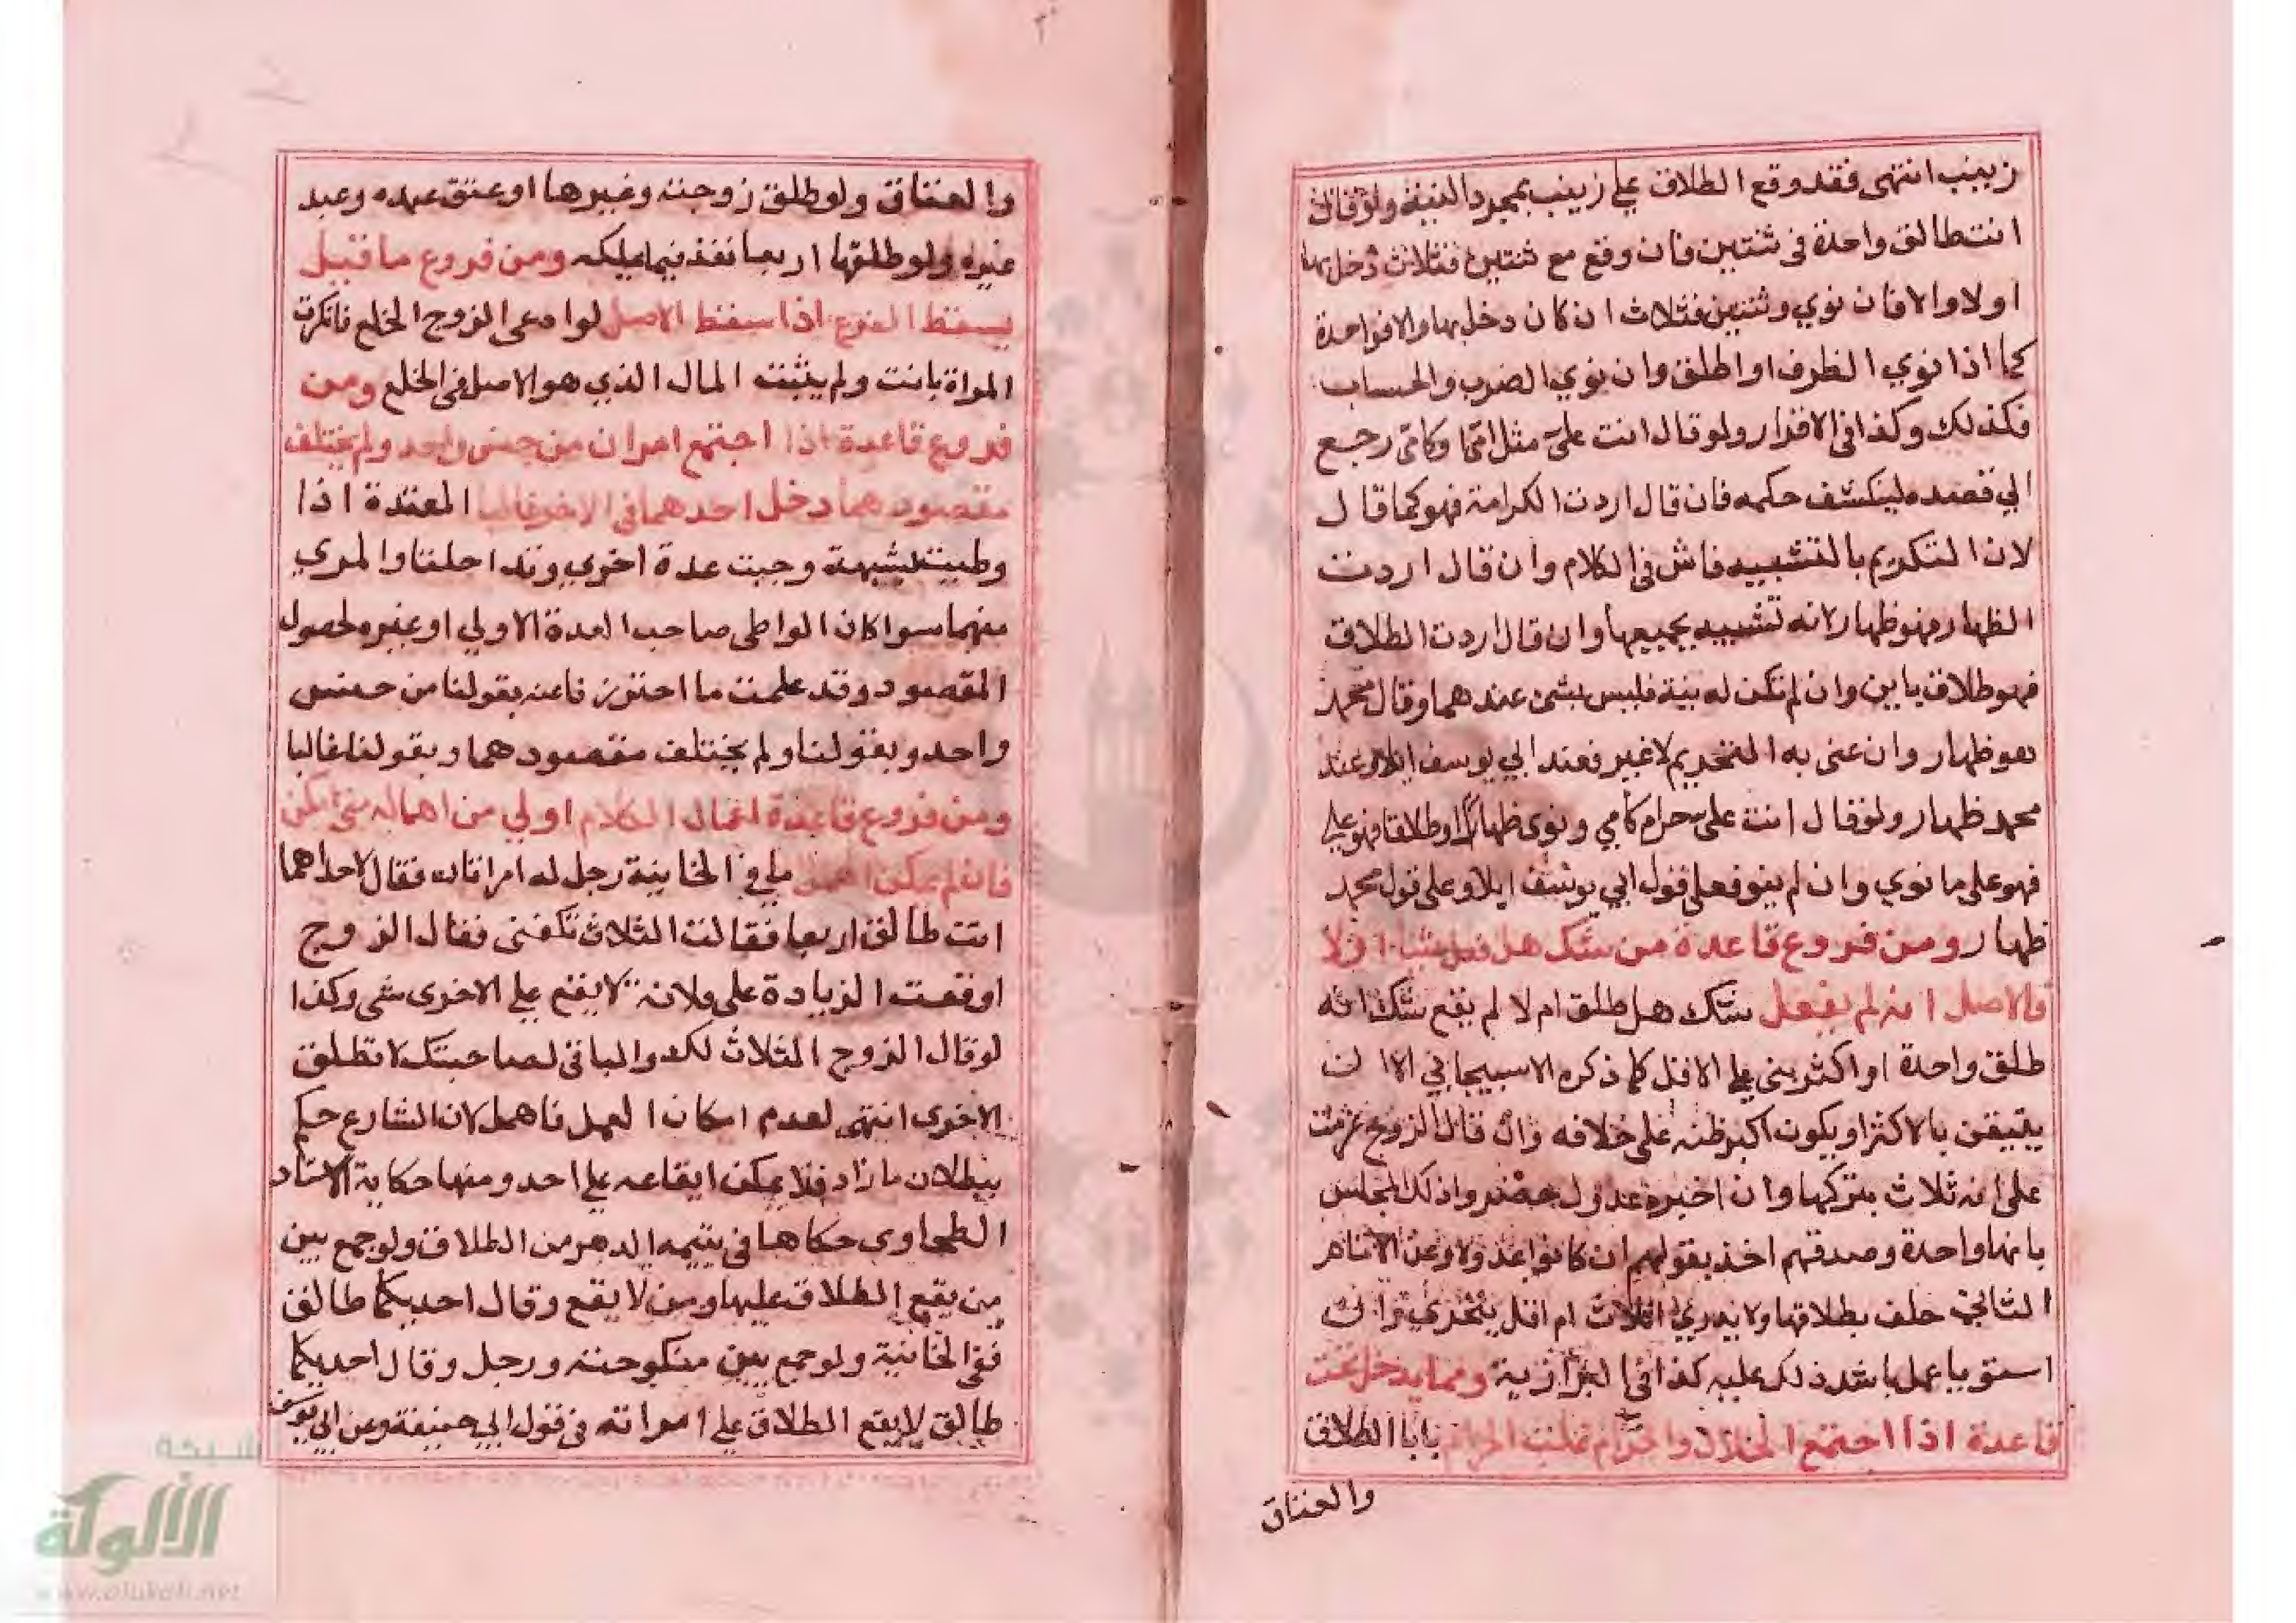 زينب انتهى فقد وقع الطلاق على زينب بمجرد النية ولو قال
انت طالق واحدة في ثنتين فان وقع مع ثنتين فثلاث دخل بها
اولا والا فان نوي وثنتين فثلاث ان كان دخل بها والا فواحدة
كما اذا نوي الظرف او اطلق وان نوي الضرب والحساب
فكذلك وكذا في الاقرار ولو قال انت علي مثل امي وكامي رجع
الي قصده لينكشف حكمه فان قال اردت الكرامة فهو كما قال
لان التكريم بالتشبيه فاش في الكلام وان قال اردت
الظهار فهو ظهار لانه تشبيه بجميعها وان قال اردت الطلاق
فهو طلاق باين وان لم تكن له نية فليس بشئ عندهما وقال محمد
هو ظهار وان عنى به التحريم لا غير فعند ابي يوسف ايلا وعند
محمد ظهار ولو قال انت علي حرام كامي ونوى ظهارا او طلاقا فهو علي
فهو على ما نوي وان لم ينو فعلى قول ابي يوسف ايلا وعلى قول محمد
ظهار ومن فروع قاعدة من شك هل فعل شيا ام لا
فالاصل انه لم يفعل شك هل طلق ام لا لم يقع شك انه
طلق واحدة او اكثر بنى على الاقل كما ذكره الاسبيجابي الا ان
يتيقن بالاكثر او يكون اكبر ظنه على خلافه وان قال الزوج عزمت
على انه ثلاث يتركها وان اخبره عدول حضروا ذلك المجلس
بانها واحدة وصدقهم اخذ بقولهم ان كانوا عدولا وعن الامام
الثاني حلف بطلاقها ولا يدري اثلاث ام اقل يتحرى وان
استويا عمل باشد ذلك عليه كذا في البزازية ومما يدخل تحت
قاعدة اذا اجتمع الحلال والحرام غلب الحرام بابا الطلاق
والعتاق
والعتاق ولو طلق زوجته وغيرها او عتق عبده وعبد
غيره ولو طلقها اربعا نفذ فيما يملكه ومن فروع ما قبيل
يسقط الفرع اذا سقط الاصل لو ادعى الزوج الخلع فانكرت
المراة بانت ولم يثبت المال الذي هو الاصل في الخلع ومن
فروع قاعدة اذا اجتمع امران من جنس واحد ولم يختلف
مقصودهما دخل احدهما في الاخر غالبا المعتدة اذا
وطيت بشبهة وجبت عدة اخرى وتداخلتا والمري
منهما سوا كان الواطى صاحب العدة الاولي او غيره لحصول
المقصود وقد علمت ما احترزنا عنه بقولنا من جنس
واحد وبقولنا ولم يختلف مقصودهما وبقولنا غالبا
ومن فروع قاعدة اعمال الكلام اولي من اهماله متى امكن
فان لم يمكن اهمل ما في الخانية رجل له امراتان فقال لاحداهما
انت طالق اربعا فقالت الثلاث تكفني فقال الزوج
اوقعت الزيادة على فلانة لا يقع على الاخرى شى وكذا
لو قال الزوج الثلاث لك والباقى لصاحبتك لا تطلق
الاخرى انتهى لعدم امكان العمل فاهمل لان الشارع حكم
ببطلان ما زاد فلا يمكن ايقاعه على احد ومنها حكاية الاستاد
الطحاوى حكاها في يتيمه الدهر من الطلاق ولو جمع بين
من يقع الطلاق عليها ومن لا يقع وقال احديكما طالق
ففى الخانية ولو جمع بين منكوحته ورجل وقال احديكما
طالق لا يقع الطلاق على امراته في قول ابي حنيفة وعن ابي يوسف
شبكة
الألوكة
www.alukah.net